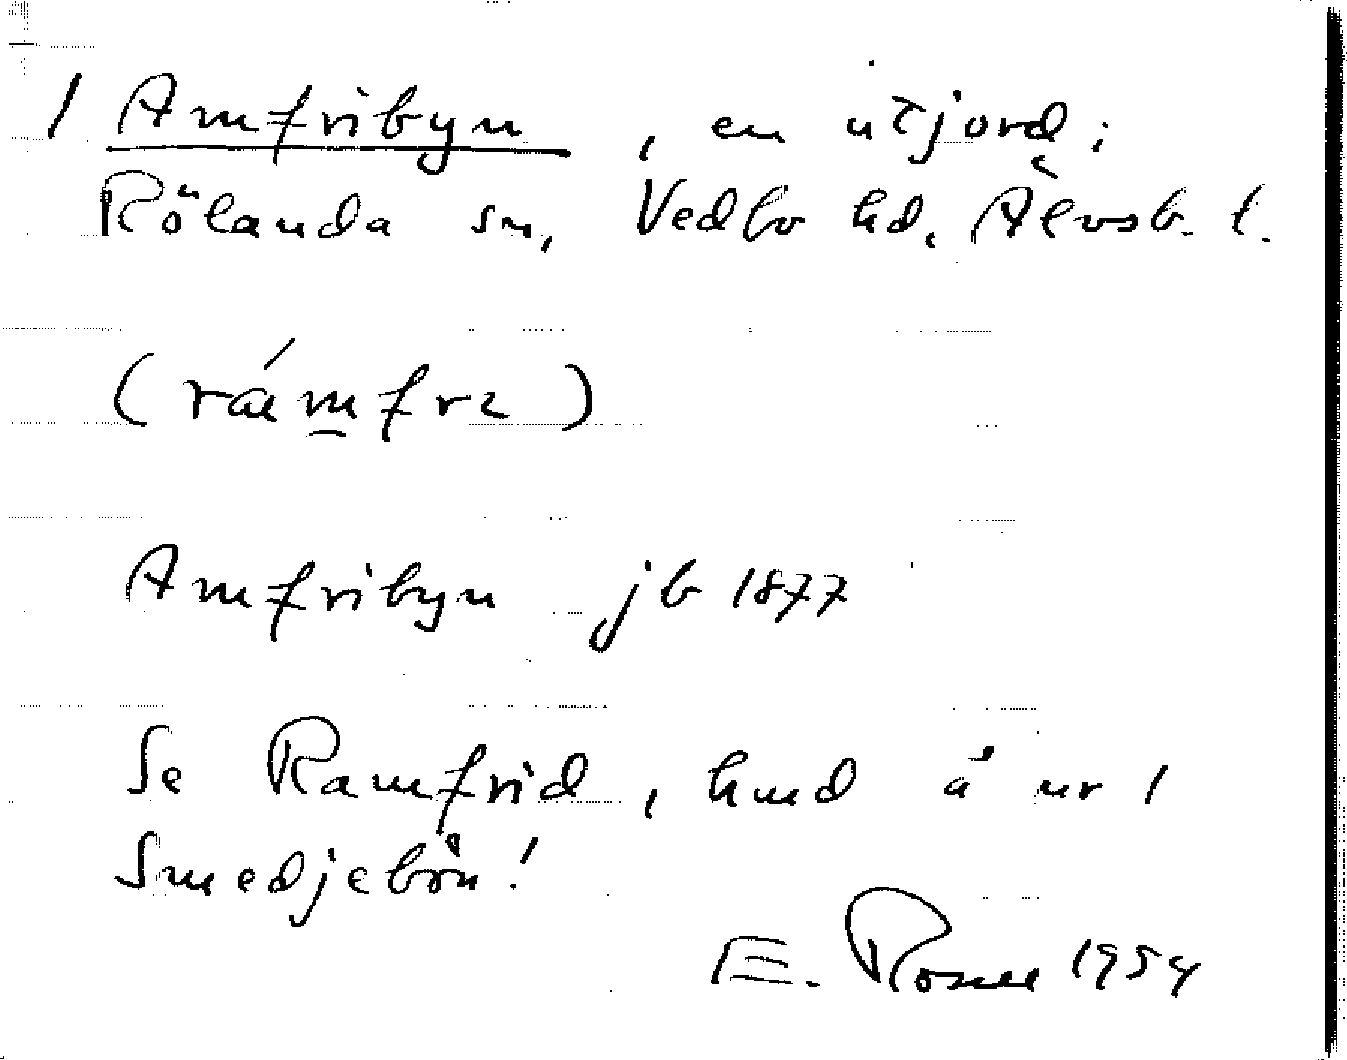 / Amfribyn, en utjord i
Rölanda sn, Vedbo hd, Älvsb. l.
(rámfrɩ)
Amfribyn jb 1877
Se Ramfrid, hmd å nr 1
Smedjebön!
E. Rosell 1954